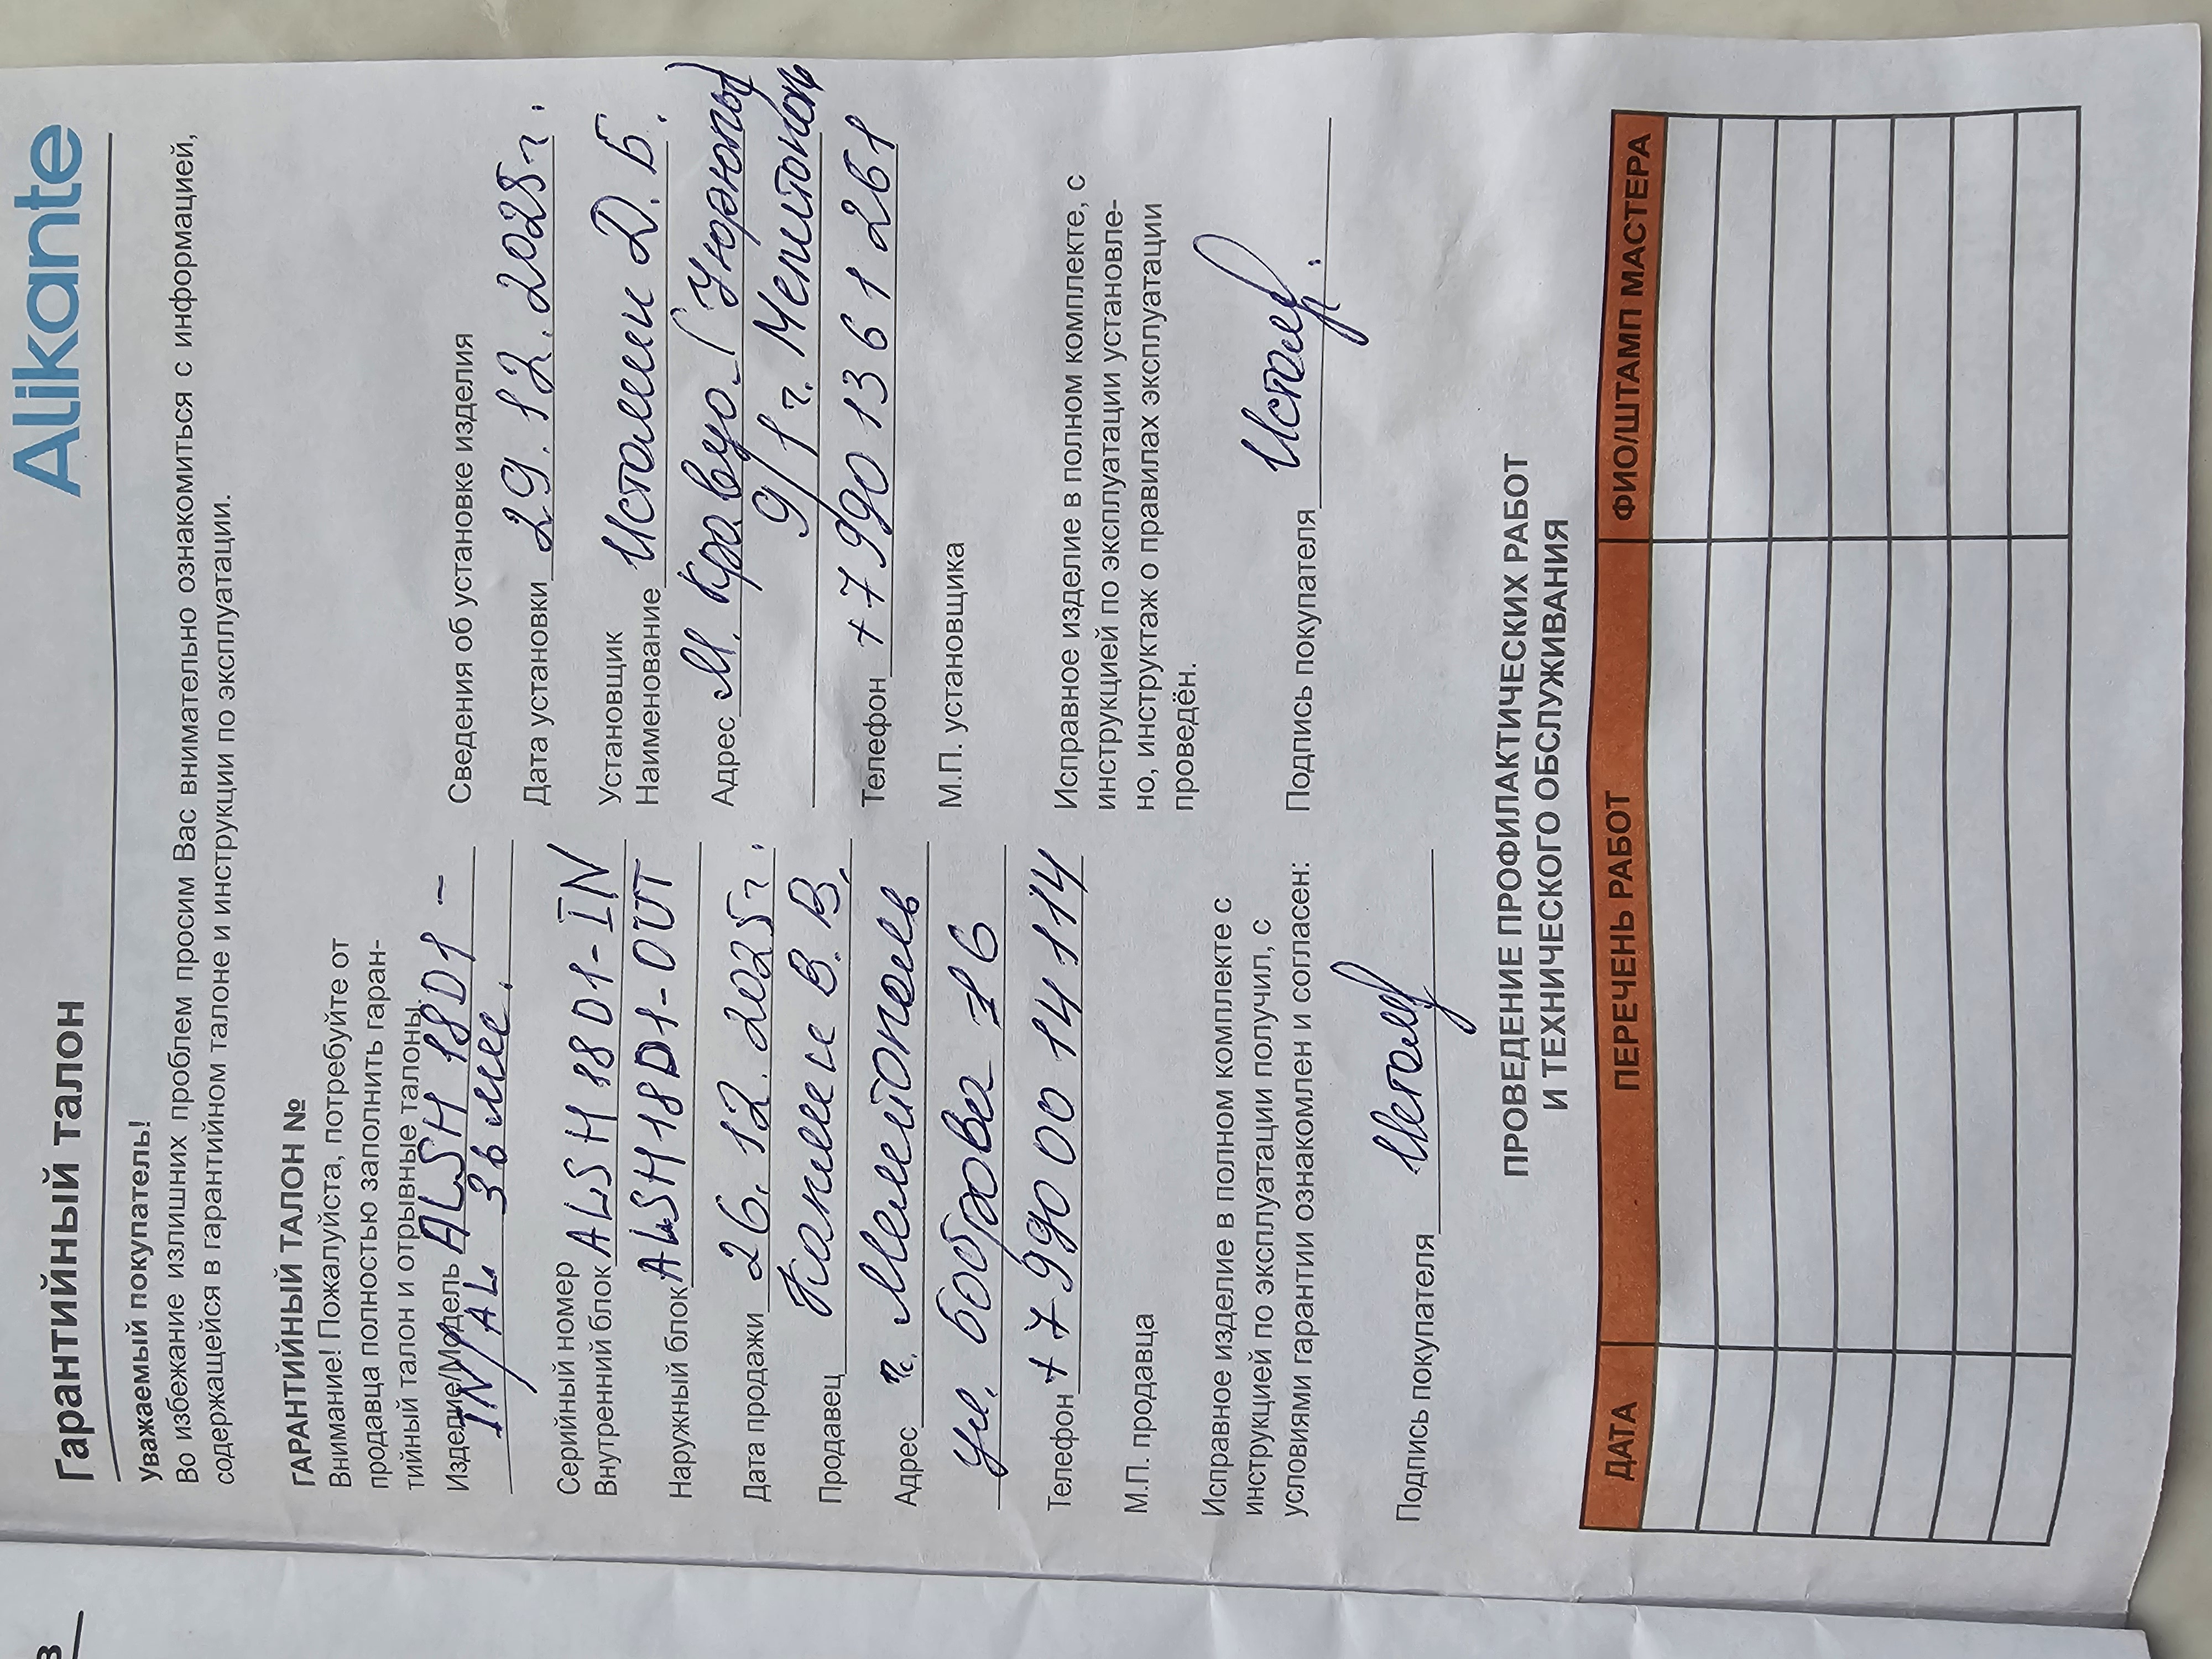 Alikante
Гарантийный талон
Уважаемый покупатель!
Во избежание излишних проблем просим Вас внимательно ознакомиться с информацией,
содержащейся в гарантийном талоне и инструкции по эксплуатации.
ГАРАНТИЙНЫЙ ТАЛОН №
Внимание! Пожалуйста, потребуйте от
продавца полностью заполнить гаран-
тийный талон и отрывные талоны.
Изделие/Модель ALSH 18D1 -
IN/AL
Серийный номер
Внутренний блок ALSH 18D1-IN
Наружный блок ALSH 18D1-OUT
Дата продажи 26.12.2025г.
Продавец В.В.
Адрес г. Мелитополь
ул. Боброва 16
Телефон +7 990 00 14 114
М.П. продавца
Исправное изделие в полном комплекте с
инструкцией по эксплуатации получил, с
условиями гарантии ознакомлен и согласен:
Подпись покупателя
Сведения об установке изделия
Дата установки 29.12.2025г.
Установщик
Наименование Д.Б.
Адрес М.
9/1 г. Мелитополь
Телефон +7 990 13 61 261
М.П. установщика
Исправное изделие в полном комплекте, с
инструкцией по эксплуатации установле-
но, инструктаж о правилах эксплуатации
проведён.
Подпись покупателя
ПРОВЕДЕНИЕ ПРОФИЛАКТИЧЕСКИХ РАБОТ
И ТЕХНИЧЕСКОГО ОБСЛУЖИВАНИЯ
ДАТА ПЕРЕЧЕНЬ РАБОТ ФИО/ШТАМП МАСТЕРА